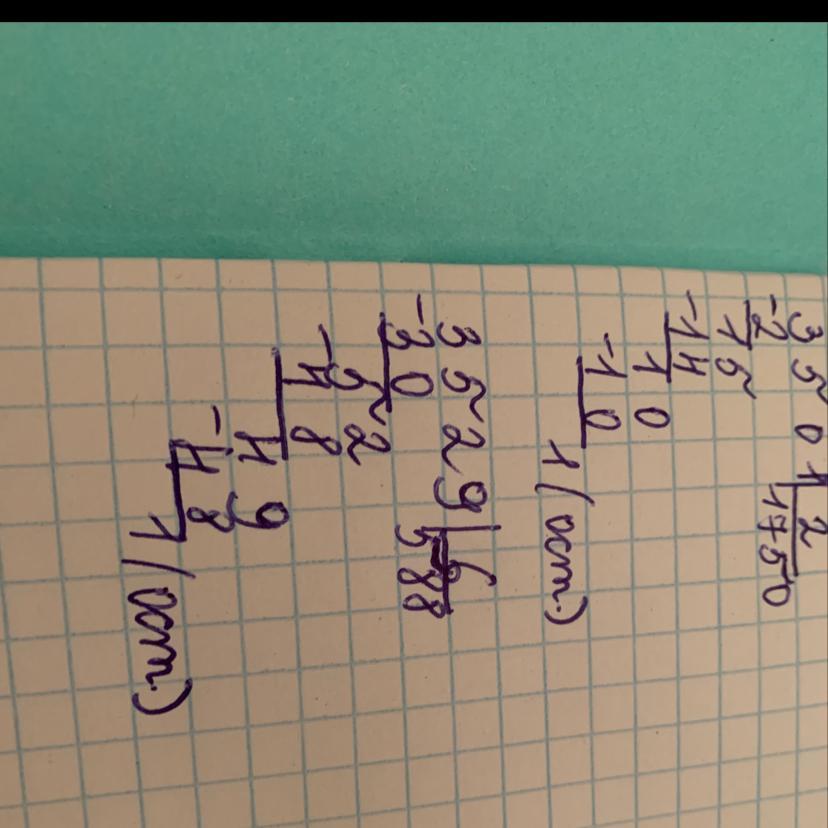 3501|2
-2
1750
15
-14
10
-10
1 (ост.)
3529|6
-30
588
52
-48
49
-48
1 (ост.)